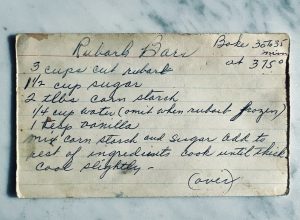 Rubarb Bars
Bake 30 to 35 min
at 375°
3 cups cut rubarb
1 1/2 cup sugar
2 tbls corn starch
1/4 cup water (omit when rubarb frozen)
1 tesp vanilla
mix corn starch and sugar add to
rest of ingredients cook until thick
cool slightly -
(over)